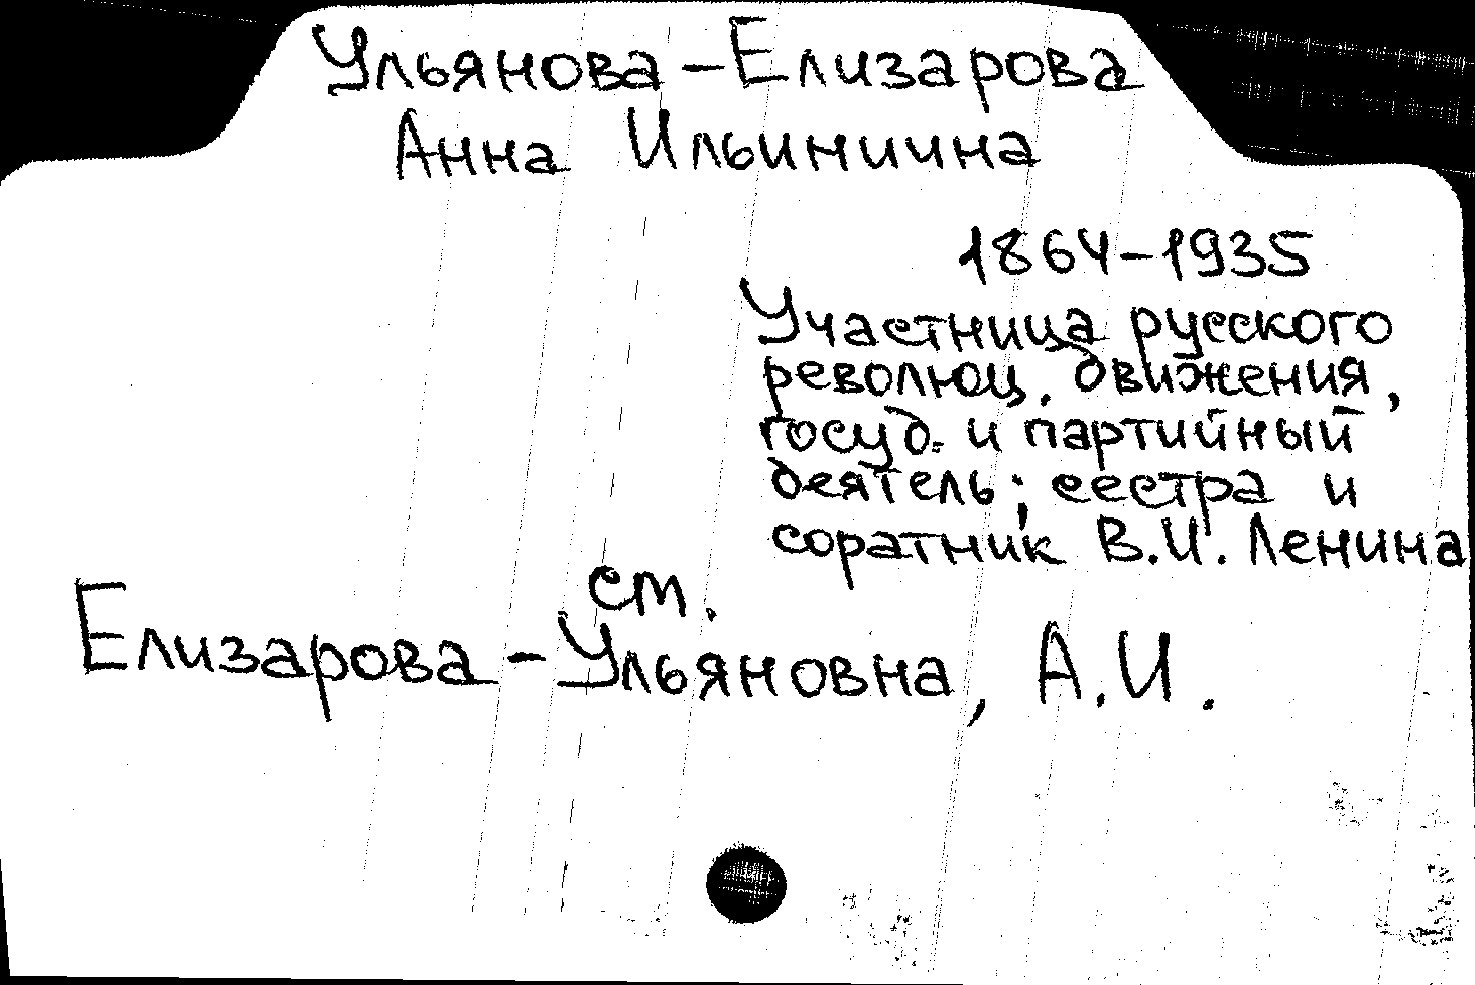 Ульянова-Елизарова
Анна Ильинична
1864-1935
Участница русского
революц. движения,
госуд. и партийный
деятель; сестра и
соратник В.И. Ленина
см.
Елизарова-Ульяновна, А.И.